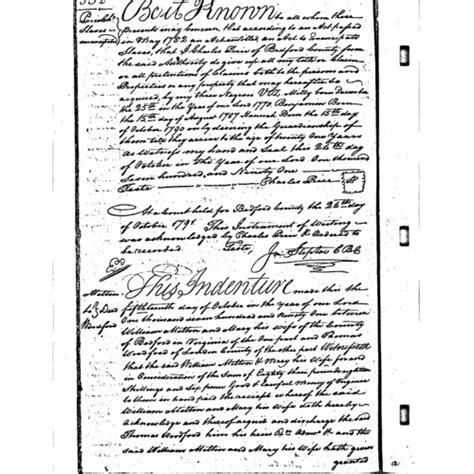 332
Be it Known to all whom these
Presents may concern, that according to an Act passed
in May 1782 an Act entitled an Act to Emancipate
Slaves, that I Charles Price of Bedford County from
the said Authority do give up all my title or Claim
or all pretentions of Claims both to the persons and
Properties or any property that may hereafter be
acquired by my three Negroes Viz Milly born December
the 25th in the Year of our Lord 1770. Benjamin Born
the 15th day of August 1787 Hannah Born the 15th day
of October 1790 only the Guardianship of
them till they arrive to the age of twenty One Years
As Witness my hand and Seal this 24th day
of October in the Year of our Lord One thousand
Seven hundred, and Ninety One
Teste Charles Price
At a Court held for Bedford County the 24th day
of October 1791 This Instrument of Writing
was acknowledged by Charles Price & Ordered to
be recorded Teste, Ja Steptoe C B C
This Indenture made this the
fifteenth day of October in the year of our Lord
One thousand seven hundred and Ninety One between
William Mitton and Mary his wife of the County
of Bedford in Virginia of the One part and Thomas
Woodford of Loudon County of the other part Witnesseth
that the said William Mitton & Mary his Wife for and
in Consideration of the Sum of Eighty three pounds
Shillings and Six pence Good & Lawful Money of Virginia
to them in hand paid the receipt whereof the said
William Mitton and Mary his Wife doth hereby
acknowledge and thereof acquit and discharge the said
Thomas Woodford him his heirs and the said
William Mitton and Mary his Wife hath given
granted